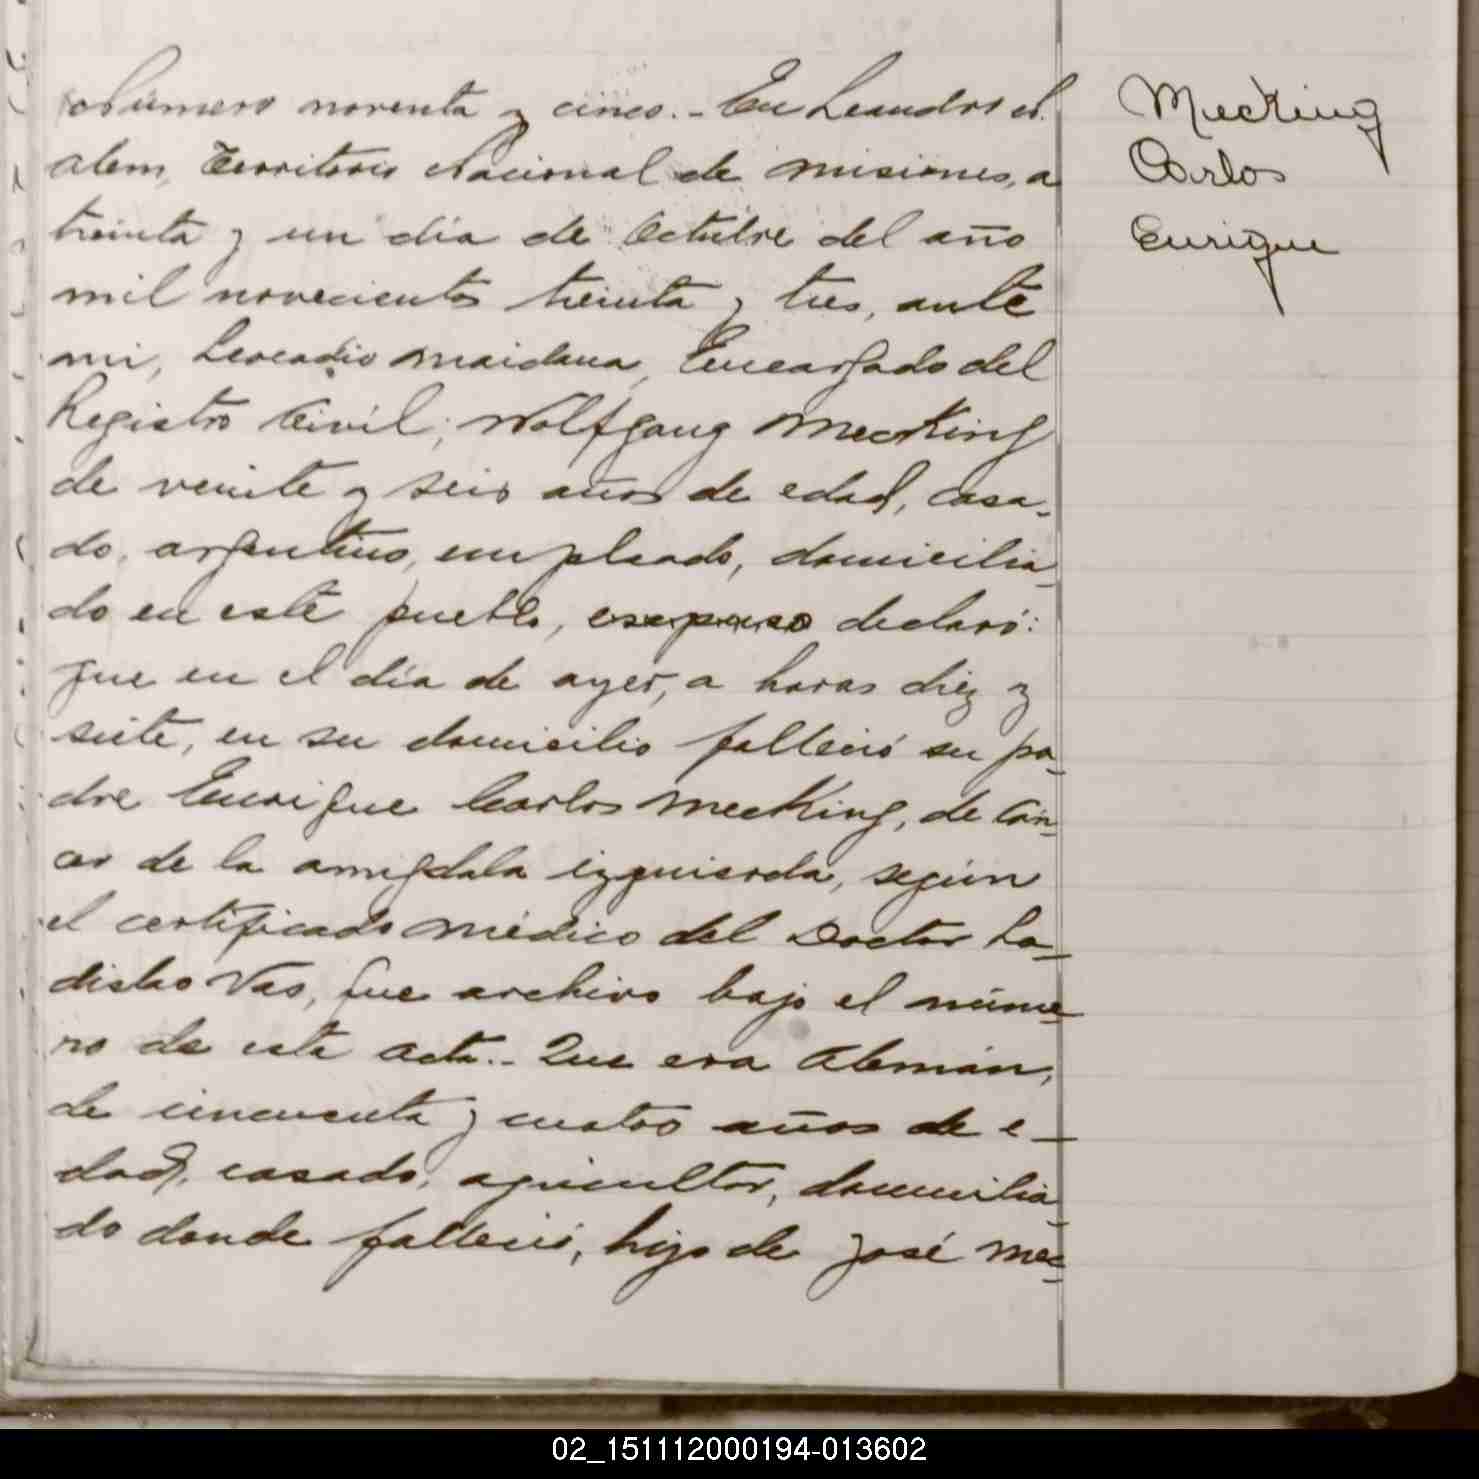 Número noventa y cinco.- En Leandro N.
Alem, Territorio Nacional de Misiones, a
treinta y un dia de Octubre del año
mil novecientos treinta y tres, ante
mi, Leocadio Maidana, Encargado del
Registro Civil; Wolfgang Mecking
de veinte y seis años de edad, casa-
do, argentino, empleado, domicilia-
do en este pueblo, declaró:
que en el día de ayer, a horas diez y
siete, en su domicilio falleció su pa-
dre Enrique Carlos Mecking, de cán-
cer de la amigdala izquierda, según
el certificado médico del Doctor La-
dislao Vas, que archivo bajo el núme-
ro de esta acta.- Que era Alemán,
de cincuenta y cuatro años de e-
dad, casado, agricultor, domicilia-
do donde falleció, hijo de José Mec-
Mecking
Carlos
Enrique
02_151112000194-013602